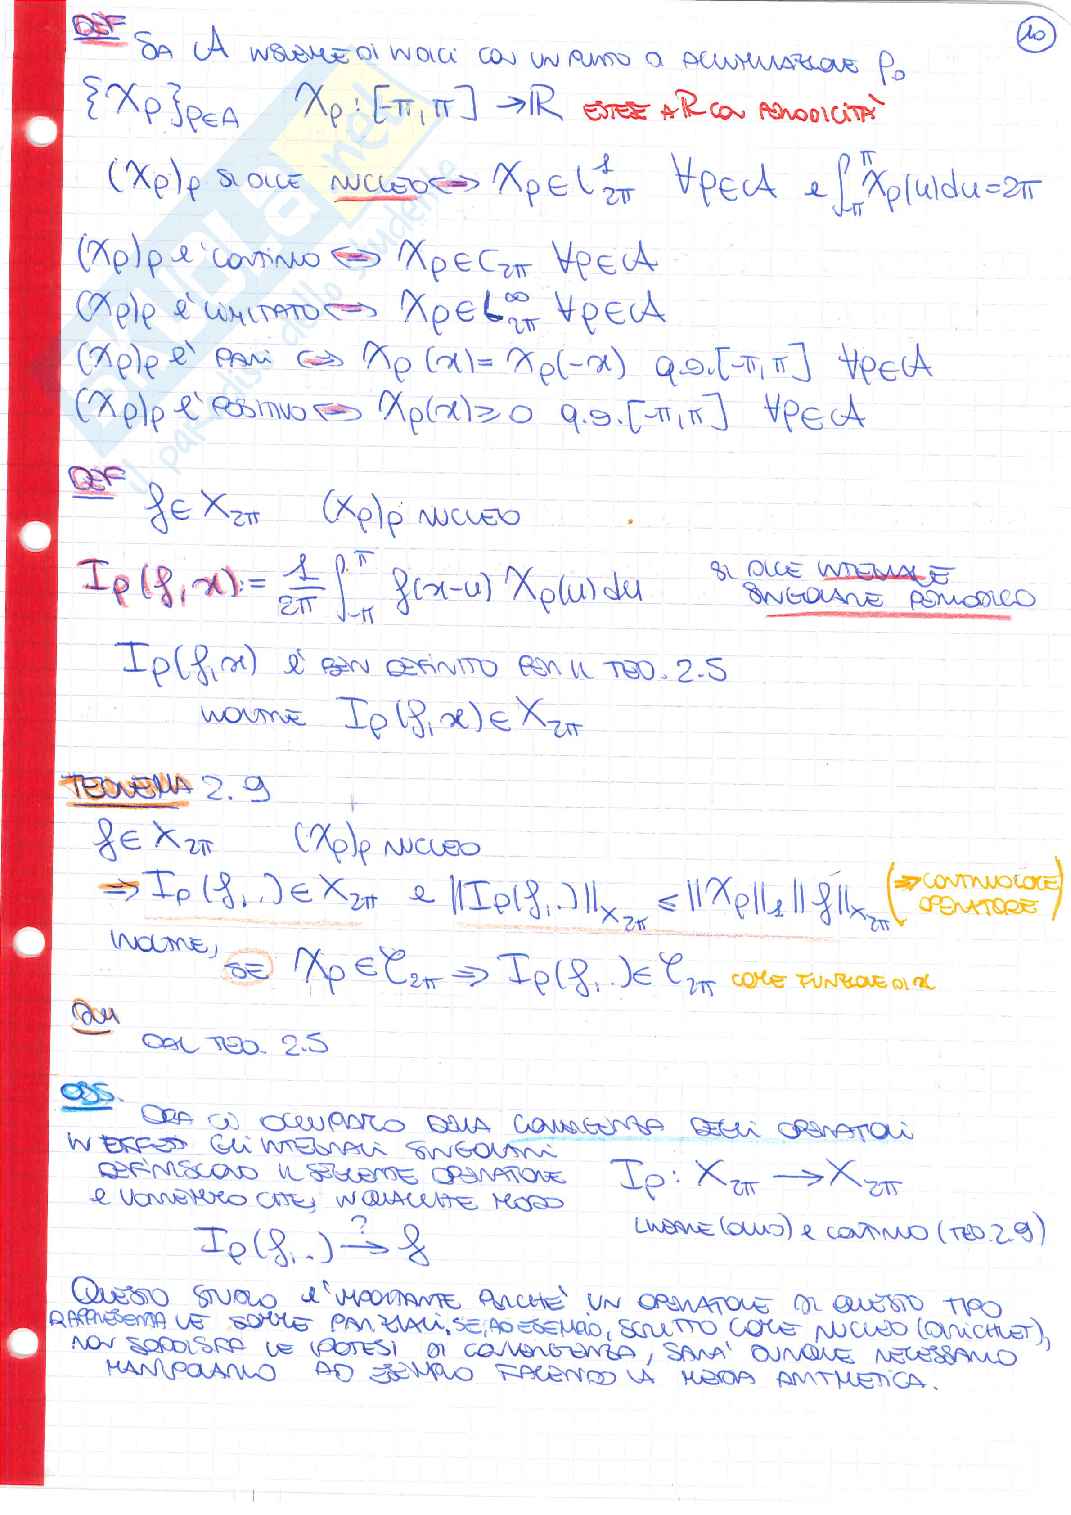 10
DEF SIA A INSIEME DI INDICI CON UN PUNTO DI ACCUMULAZIONE ρ₀
{χρ}ρ∈A χρ: [-π,π] → ℝ ESTESE A ℝ CON PERIODICITÀ
(χρ)ρ SI DICE NUCLEO ⟺ χρ ∈ L¹₂π ∀ρ∈A e ∫_{-π}^{π} χρ(u)du = 2π
(χρ)ρ è CONTINUO ⟺ χρ ∈ C₂π ∀ρ∈A
(χρ)ρ è LIMITATO ⟺ χρ ∈ L^∞₂π ∀ρ∈A
(χρ)ρ è PARI ⟺ χρ(x) = χρ(-x) q.o. [-π,π] ∀ρ∈A
(χρ)ρ è POSITIVO ⟺ χρ(x) ≥ 0 q.o. [-π,π] ∀ρ∈A
DEF
f ∈ X₂π (χρ)ρ NUCLEO
Iρ(f,x) := 1/2π ∫_{-π}^{π} f(x-u) χρ(u)du SI DICE INTEGRALE
SINGOLARE PERIODICO
Iρ(f,x) è BEN DEFINITO PER IL TEO. 2.5
INOLTRE Iρ(f,x) ∈ X₂π
TEOREMA 2.9
f ∈ X₂π (χρ)ρ NUCLEO
⇒ Iρ(f,·) ∈ X₂π e ||Iρ(f,·)||_{X₂π} ≤ ||χρ||₁ ||f||_{X₂π} (⇒ CONTINUO COME
OPERATORE)
INOLTRE,
SE χρ ∈ C₂π ⇒ Iρ(f,·) ∈ C₂π COME FUNZIONE DI x
DIM
DAL TEO. 2.5
OSS.
ORA CI OCCUPIAMO DELLA CONVERGENZA DEGLI OPERATORI
IN EFFETTI GLI INTEGRALI SINGOLARI
DEFINISCONO IL SEGUENTE OPERATORE Iρ: X₂π → X₂π
e VORREMMO CHE, IN QUALCHE MODO
LINEARE (OVVIO) e CONTINUO (TEO. 2.9)
Iρ(f,·) →? f
QUESTO STUDIO è IMPORTANTE PERCHÉ UN OPERATORE DI QUESTO TIPO
RAPPRESENTA LE SOMME PARZIALI, SE, AD ESEMPIO, SCRITTO COME NUCLEO (DIRICHLET),
NON SODDISFA LE IPOTESI DI CONVERGENZA, SARA' DUNQUE NECESSARIO
MANIPOLARLO AD ESEMPIO FACENDO LA MEDIA ARITMETICA.